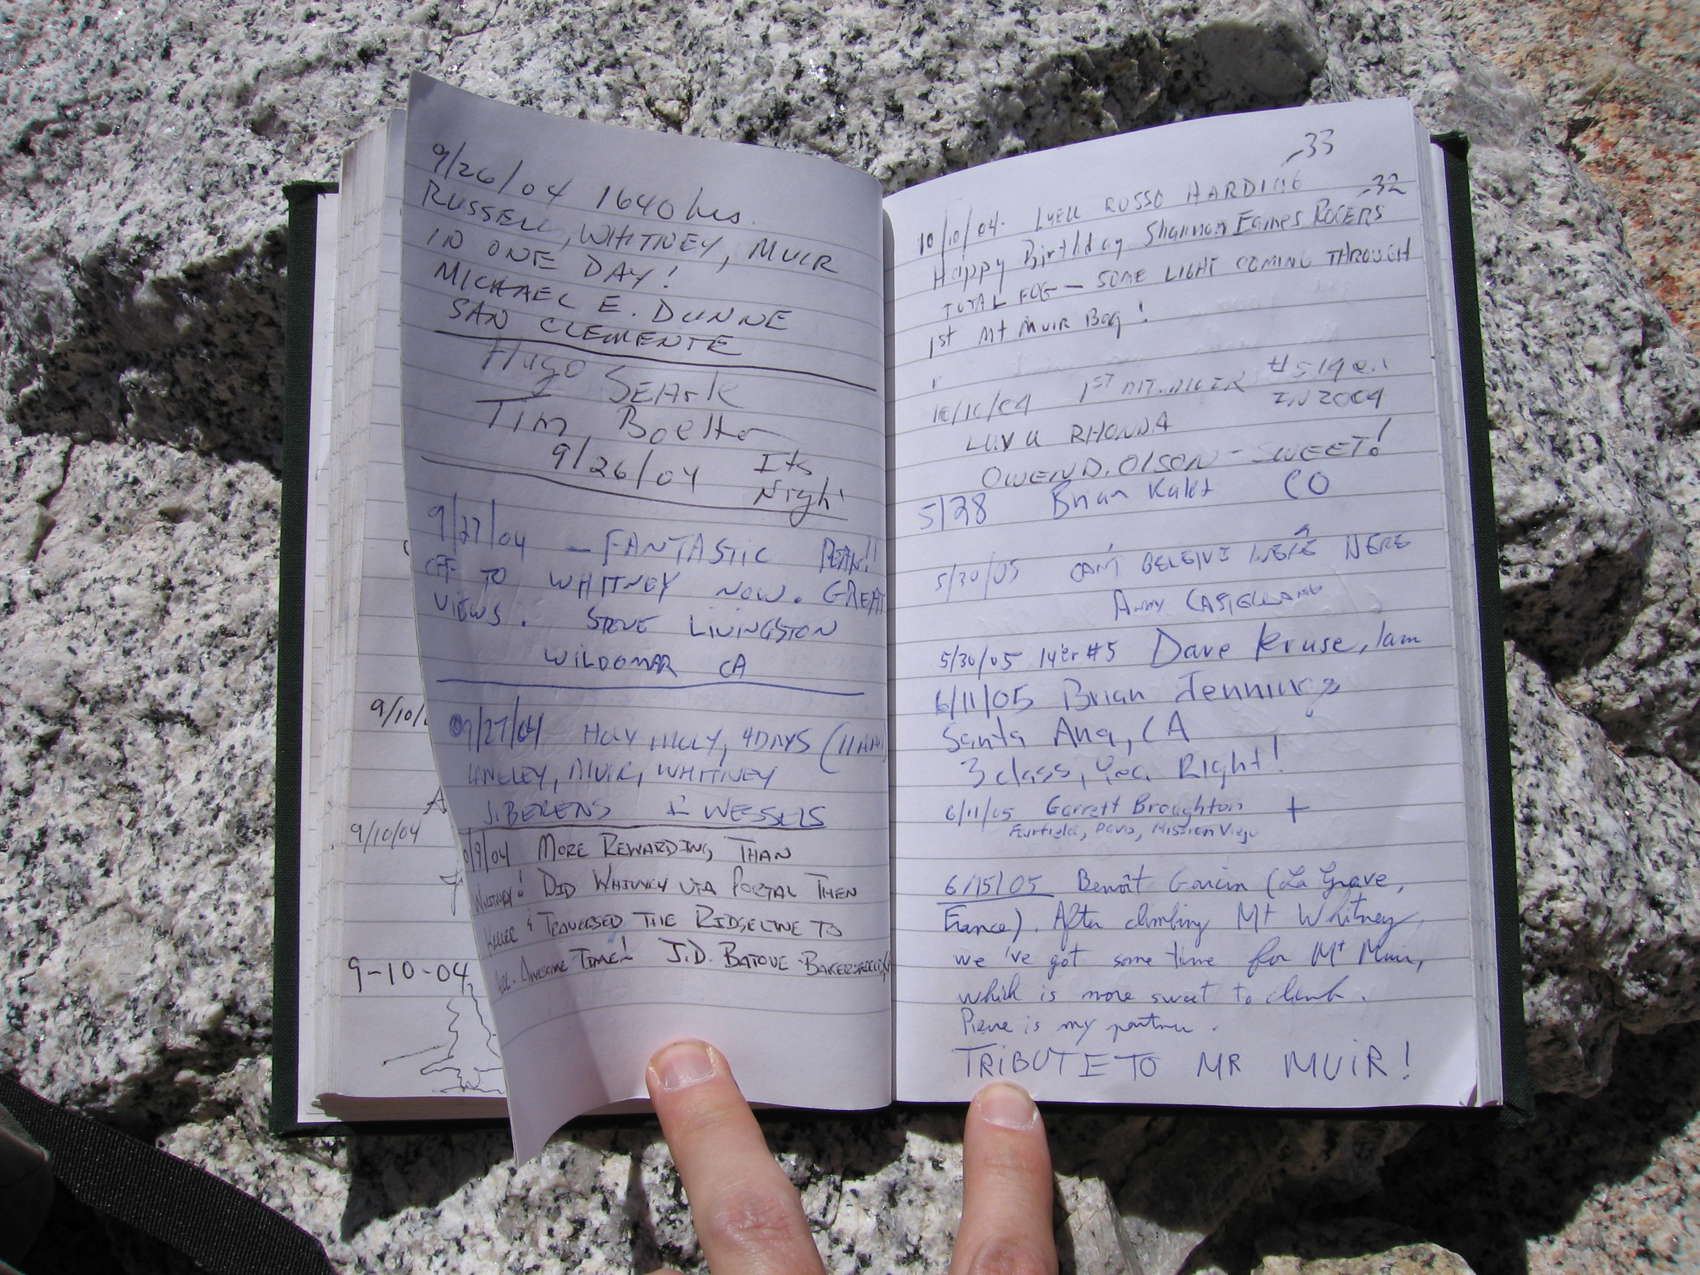 9/26/04 1640 hrs.
RUSSELL, WHITNEY, MUIR
IN ONE DAY!
MICHAEL E. DUNNE
SAN CLEMENTE
Hugo SEArle
Tim Boelter
9/26/04 Its
Night
9/27/04 — FANTASTIC
OFF TO WHITNEY NOW. GREAT
VIEWS. STEVE LIVINGSTON
WILDOMAR CA
09/27/04 HOLY MOLY, 4 DAYS
LANGLEY, MUIR, WHITNEY
J. BERENS WESSELS
0/9/04 MORE REWARDING THAN
WHITNEY! DID WHITNEY VIA PORTAL THEN
& TRAVERSED THE RIDGELINE TO
AWESOME TIME! J.D. BATOVE - BAKERSFIELD,
9/10/
A
9/10/04
9-10-04
-33
10/10/04. LYELL RUSSO HARDING -32
Happy Birthday Shannon Eames ROGERS
TOTAL FOG — SOME LIGHT COMING THROUGH
1st Mt Muir Bag!
10/10/04 1ST MT. MUIR #519
IN 2004
LUV U RHONDA
OWEN D. OLSON - SWEET!
5/28 Brian Kalet CO
5/30/05 CAN'T BELEIVE WE'RE HERE
5/30/05 14er #5 Dave Kruse, 1am
6/11/05 Brian Jennings
Santa Ana, CA
3 class, yea Right!
6/11/05 Garrett Broughton +
Fairfield, Davis, Mission Viejo
6/15/05 Benoît (La Grave,
France). After climbing Mt Whitney,
we've got some time for Mt Muir,
which is more sweet to climb.
Pierre is my partner.
TRIBUTE TO MR MUIR!